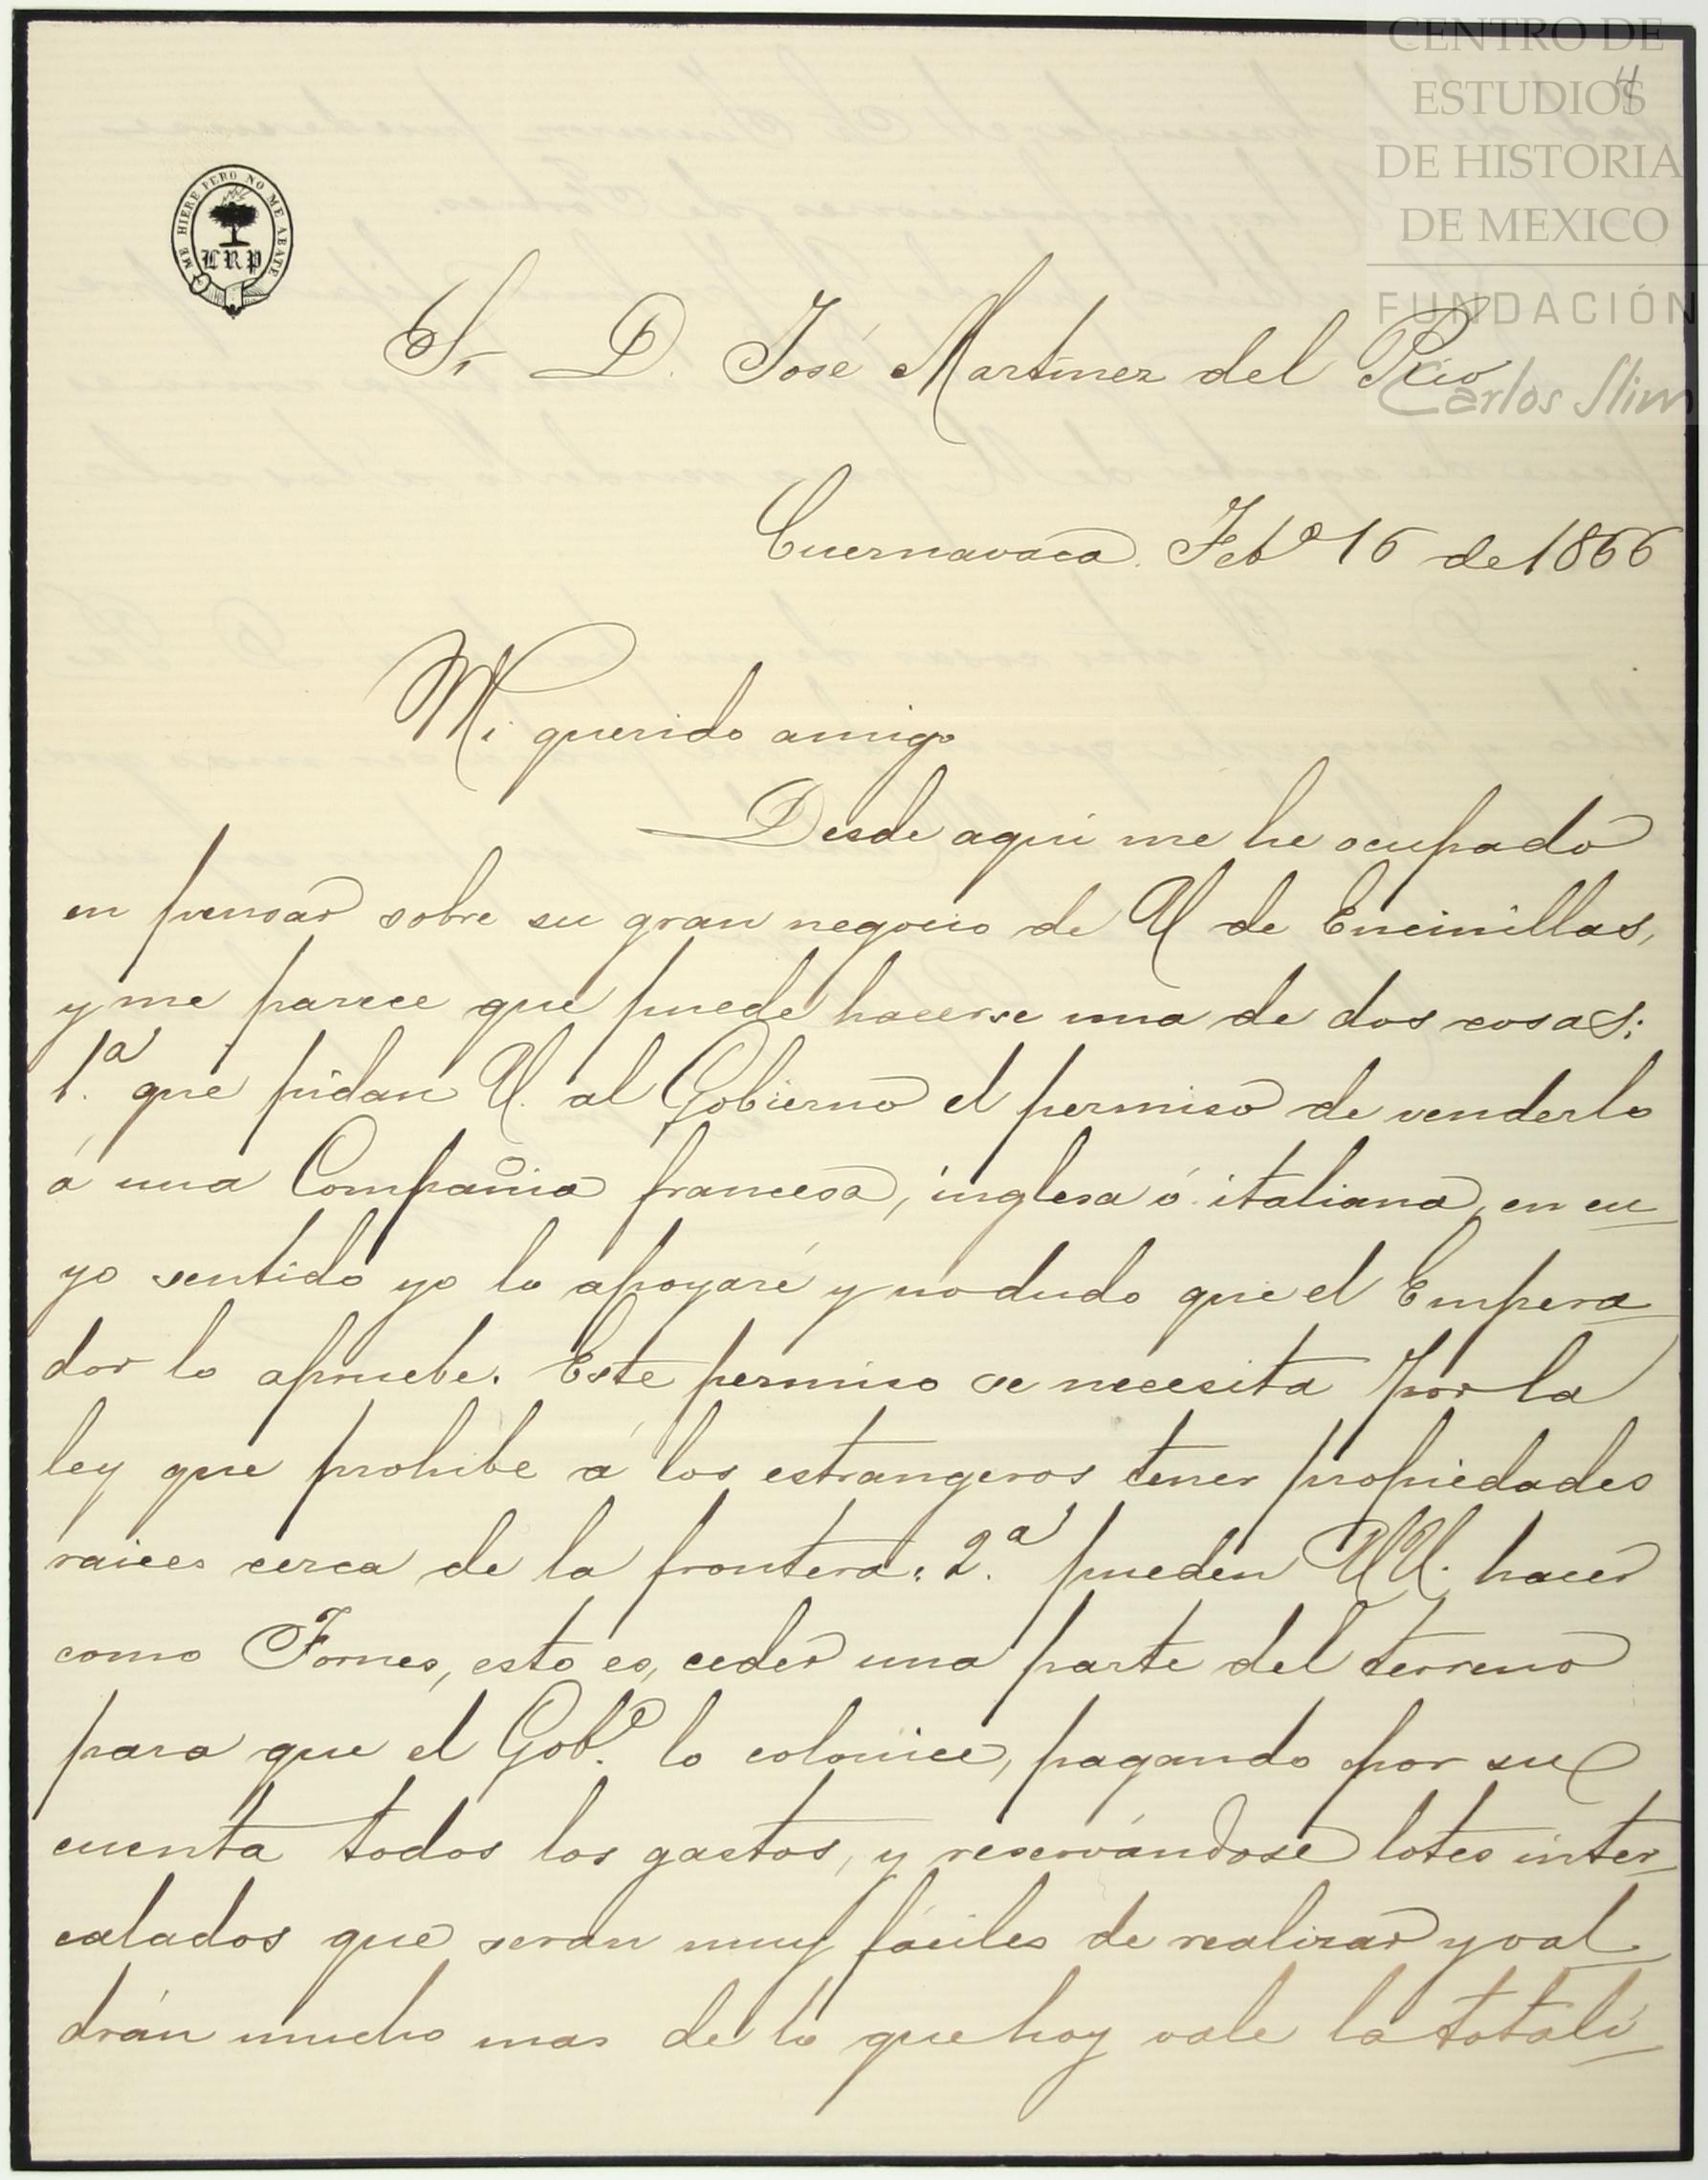 CENTRO DE
ESTUDIOS
DE HISTORIA
DE MEXICO
FUNDACIÓN
Carlos Slim
ME HIERE PERO NO ME ABATE
LRP
Sr D. José Martinez del Rio
Cuernavaca. Feb.o 16 de 1866
Mi querido amigo
Desde aqui me he ocupado
en pensar sobre su gran negocio de U de Encinillas,
y me parece que puede hacerse una de dos cosas:
1.a que pidan U. al Gobierno el permiso de venderlo
á una Compañia francesa, inglesa ó italiana, en cu-
yo sentido yo lo apoyaré y no dudo que el Empera-
dor lo apruebe. Este permiso se necesita por la
ley que prohibe á los estrangeros tener propiedades
raices cerca de la frontera: 2.a pueden UU. hacer
como Fornes, esto es, ceder una parte del terreno
para que el Gob.o lo colonice, pagando por su
cuenta todos los gastos, y reservándose lotes inter-
calados que seran muy fáciles de realizar y val-
drán mucho mas de lo que hoy vale la totali-